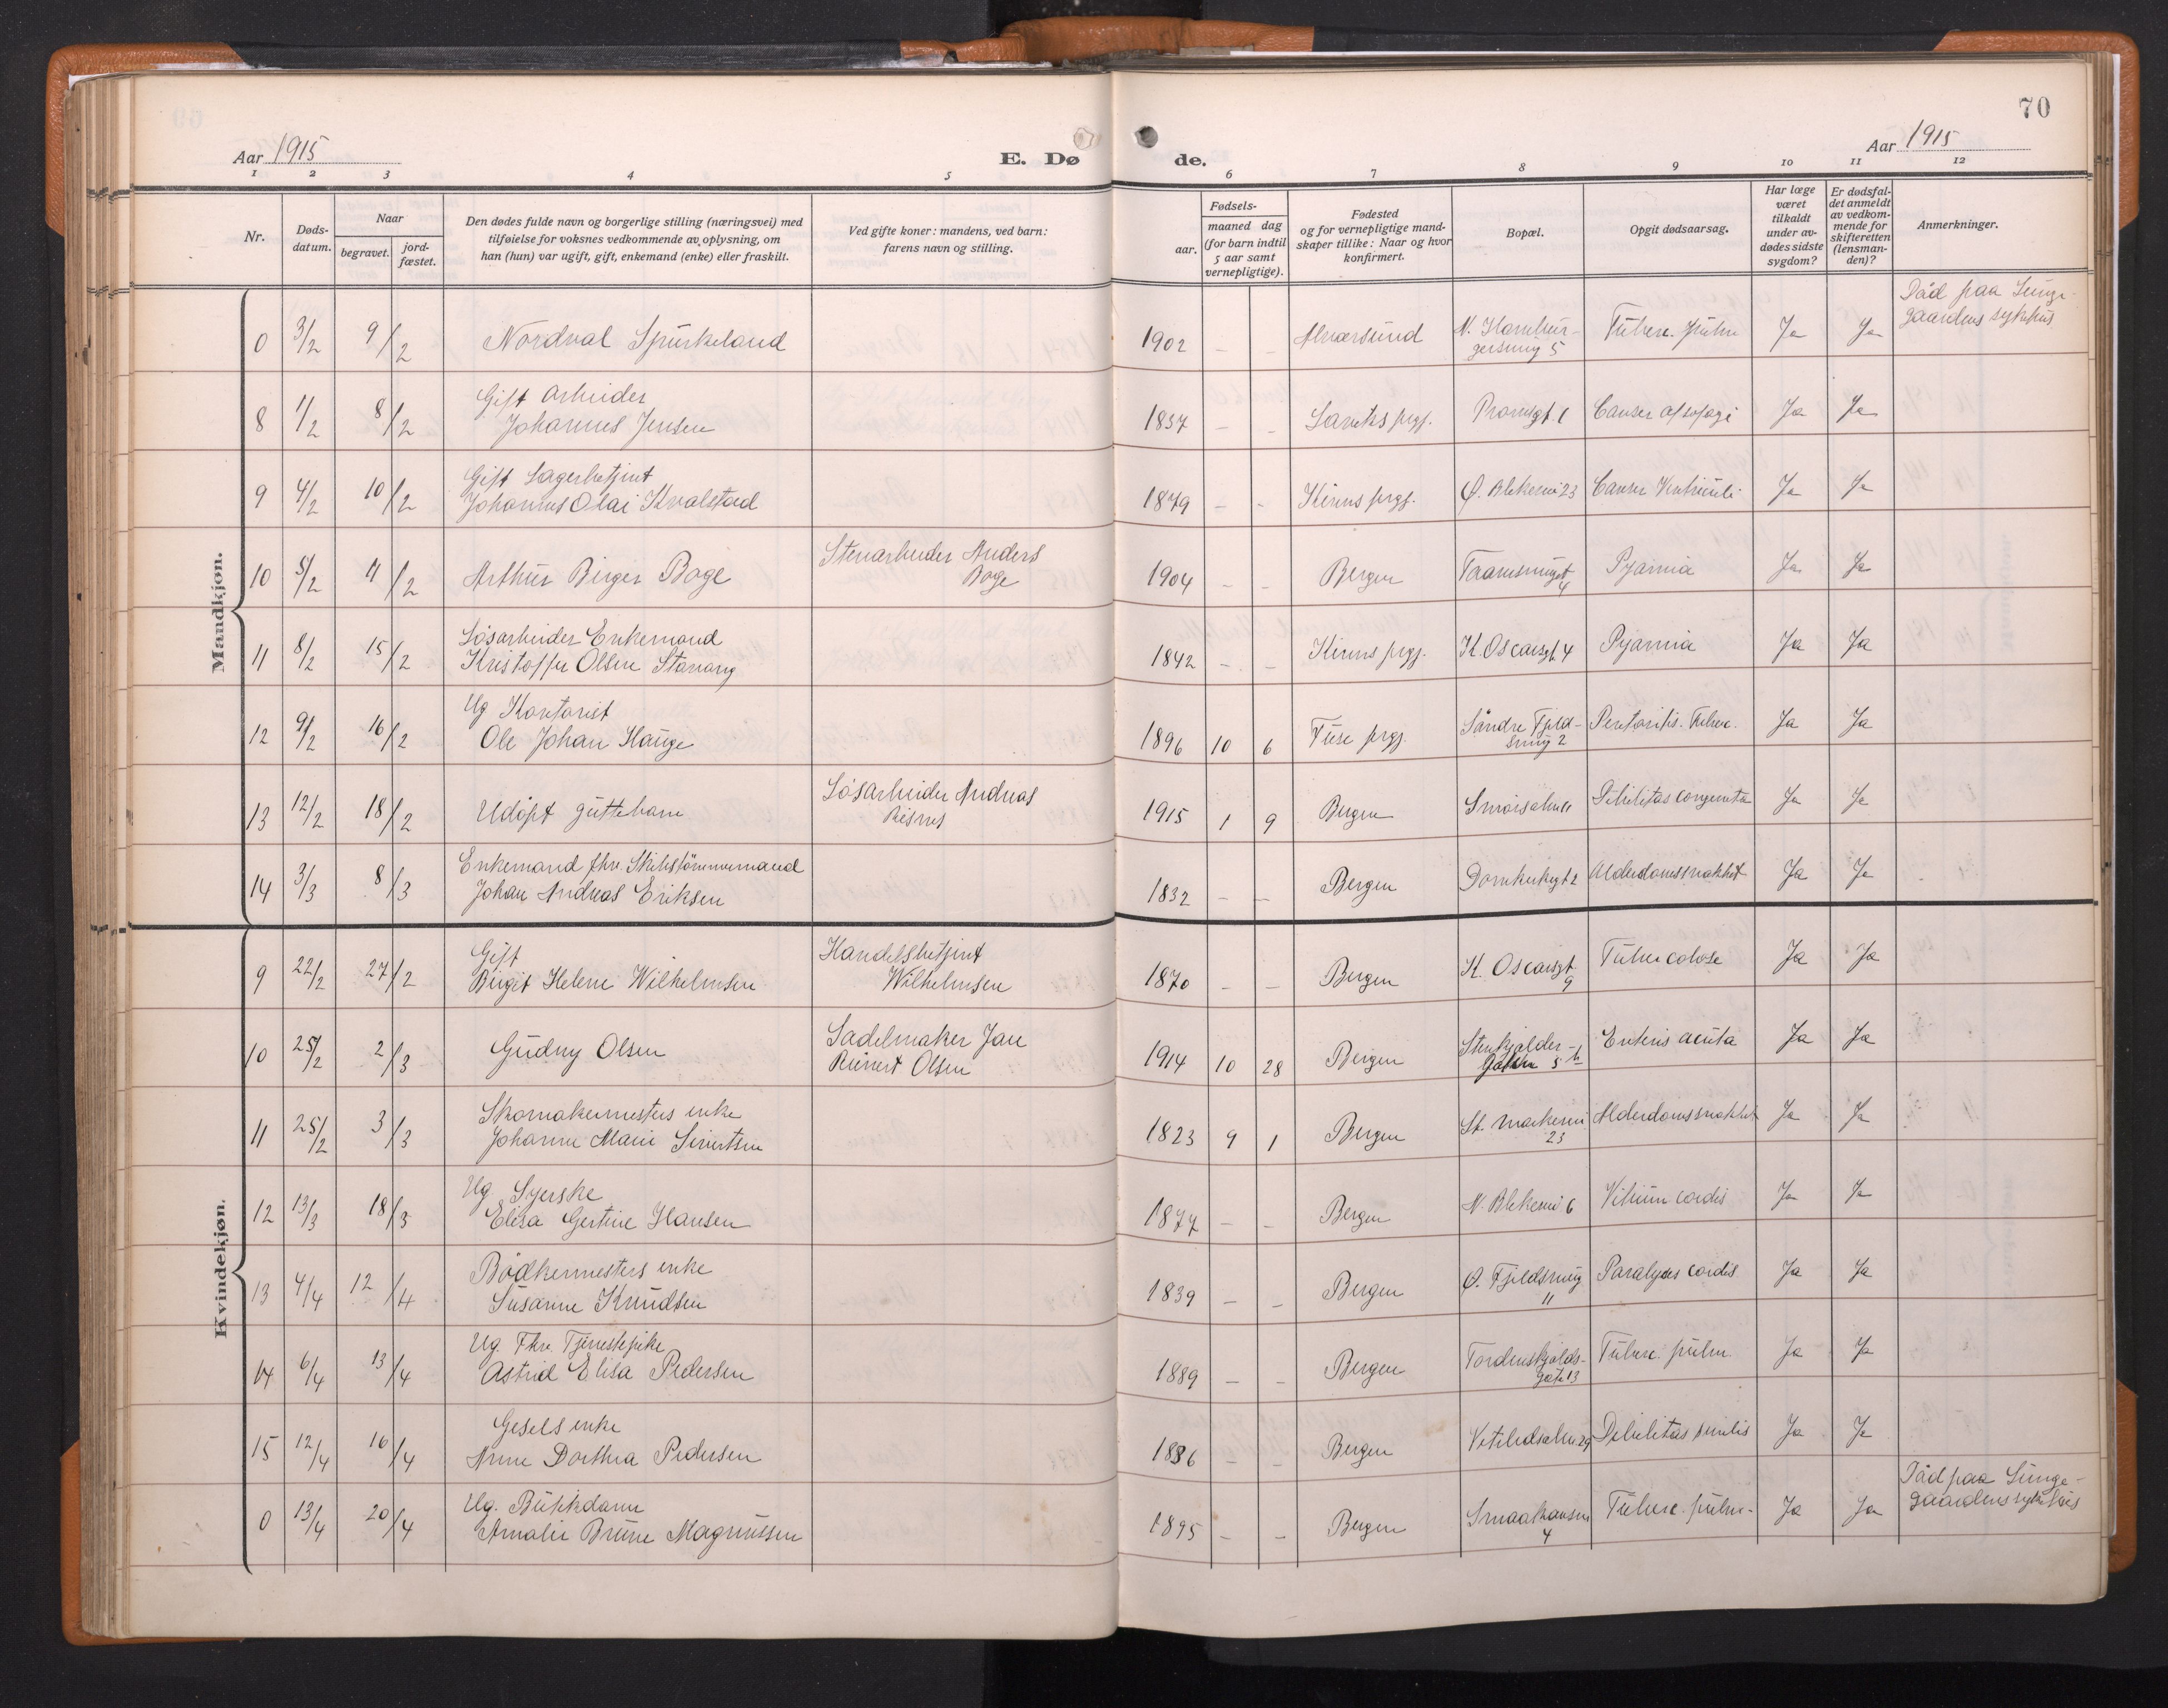 70
Aar 1915
E. Dø
de.
Aar 1915
1 2 3 4 5 6 7 8 9 10 11 12
Nr.
Døds-
datum.
Naar
begravet.
jord-
fæstet.
Den dødes fulde navn og borgerlige stilling (næringsvei) med
tilføielse for voksnes vedkommende av oplysning, om
han (hun) var ugift, gift, enkemand (enke) eller fraskilt.
Ved gifte koner: mandens, ved barn:
farens navn og stilling.
aar.
Fødsels-
maaned dag
(for barn indtil
5 aar samt
vernepligtige).
Fødested
og for vernepligtige mand-
skaper tillike: Naar og hvor
konfirmert.
Bopæl.
Opgit dødsaarsag.
Har læge
været
tilkaldt
under av-
dødes sidste
sygdom?
Er dødsfal-
det anmeldt
av vedkom-
mende for
skifteretten
(lensman-
den)?
Anmerkninger.
Mandkjøn.
0 3/2 9/2 Nordval Spurkeland 1902 – – Alværsund N. Hambur-
gersmug 5 Tuberc. pulm Ja Ja Død paa Lunge-
gaardens sykehus
8 1/2 8/2 Gift Arbeider
Johannes Jensen 1857 – – prgj. Promsgt. Cancer øsofagi Ja Ja
9 4/2 10/2 Gift Lagerbetjent
Johannes Olai Kvalstad 1879 – – Kinns prgj. Ø. Blekevei 23 Cancer Ventriculi Ja Ja
10 5/2 11/2 Arthur Birger Boge Stenarbeider Anders
Boge 1904 – – Bergen Taarnsmuget
4 Pyæmia Ja Ja
11 8/2 15/2 Løsarbeider Enkemand
Kristoffer Olsen Stavang 1842 – – Kinns prgj. K. Oscarsgt. 4 Pyæmia Ja Ja
12 9/2 16/2 Ug Kontorist
Ole Johan Hauge 1896 10 6 Fuse prgj. Søndre Fjeld-
smug 2 Peritonitis. Tuberc. Ja Ja
13 12/2 18/2 Udøpt guttebarn Løsarbeider Andreas
Risnes 1915 1 9 Bergen Smørsalm 11 Debilitas congenita Ja Ja
14 3/3 8/3 Enkemand fhv. Skibstømmermand
Johan Andreas Eriksen 1832 – – Bergen Domkirkegt 2 Alderdomssvakhet Ja Ja
Kvindekjøn.
9 22/2 27/2 Gift
Birgit Helene Wilhelmsen Handelsbetjent
Wilhelmsen 1870 – – Bergen K. Oscarsgt.
9 Tuberculose Ja Ja
10 25/2 2/3 Gudny Olsen Sadelmaker Jan
Reinert Olsen 1914 10 28 Bergen Stenkjelder-
gaten 5 b Enteris acuta Ja Ja
11 25/2 3/3 Skomakermesters enke
Johanne Marie Sivertsen 1823 9 1 Bergen St. Markevei
23 Alderdomssvakhet Ja Ja
12 13/3 18/3 Ug Syerske
Elisa Gertine Hansen 1877 – – Bergen N. Blekevei 6 Vitium cordis Ja Ja
13 4/4 12/4 Bødkermesters enke
Susanne Knudsen 1839 – – Bergen Ø. Fjeldsmug
11 Paralyses cordis Ja Ja
14 6/4 13/4 Ug. Fhv. Tjenestepike
Astrid Elisa Pedersen 1889 – – Bergen Tordenskjolds-
gate 13 Tuberc. pulm. Ja Ja
15 12/4 16/4 Gesels enke
Anne Dorthea Pedersen 1836 – – Bergen Vetrlidsalm 29 Debilitas senilis Ja Ja
0 13/4 20/4 Ug. Butikdame
Amalie Brune Magnussen 1895 – – Bergen Smaahausen
4 Tuberc. pulm. Ja Ja Død paa Lunge-
gaardens sykehus